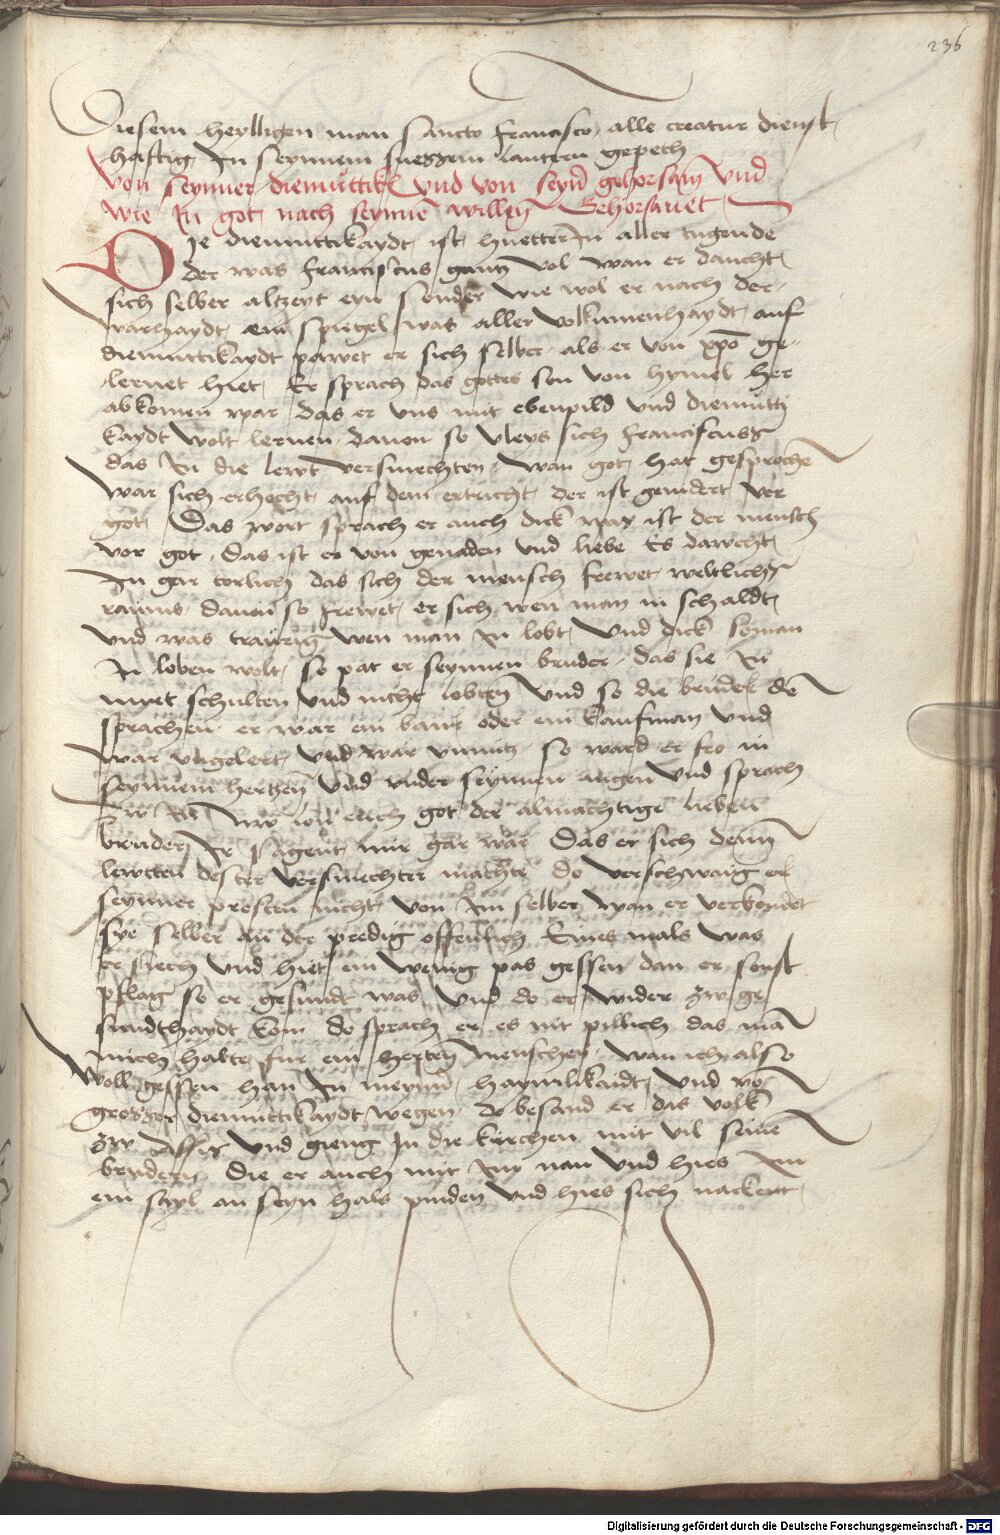 236
Diesem heylligen man Sancto francisco alle creatur dienst
haftig In seynnem suesszem lautern gepeth
Von seynner diemuttik vnd von seynr gehorsam vnd
wie In got nach seynnē willen Gehorsamet
Die diemuttikaydt ist huetterin aller tugende
der was franciscus gantz vol wan er daucht
sich selber altzeyt eyn Sonder wie wol er nach der
warhaydt ein spiegel was aller volkumenhaydt auf
diemuttikaydt pawet er sich selber als er von xpō ge-
lernet hiet Er sprach das gottes son von hymel her
abkomen war das er vns mit ebenpild vnd diemutti
kaydt wolt lernen dauon so vleys sich franciscus
das In die lewt versmechten wan got hat gesprochē
war sich erhocht auf dem ertricht der ist genidert vor
got Das wort sprach er auch dick was ist der mensch
vor got das ist er von genaden vnd liebe Es dawcht
In gar torlich das sich der mensch frewet weltlichs
raums dauon so frewet er sich wen man in schaldt
vnd was traurig wen man In lobt vnd dick so man
In loben wolt so pat er seynnen bruder das sie In
nuet schulten vnd nicht lobten vnd so die bruder dō
sprachen er war ein baur oder ein kaufman vnd
war vngelert vnd war vnnutz so ward er fro in
seynnem hertzen vnd vnder seynnen augen vnd sprach
nw lon euch got der almachtige lieben
bruder Ir sagent mir gar war Das er sich denn
lewtten dester versmechter machte do verschwaig er
seynner presten nicht von Im selber wan er verkondet
sye selber an der predig offenlich Eines mals was
er siech vnd hiet ein wenig pas gessen dan er sonst
pflag so er gesundt was vnd do er wider zw ge
sundthaydt kom do sprach er es nit pillich das mā
mich halte fur ein menschen wan ich also
woll gessen han In meynr haymlikaidt vnd vō
grosser diemuttikaydt wegen do besand er das volk
zw Assis vnd gieng In die kirchen mit vil seinē
brudern die er auch mit Im nam vnd hies Im
ein sayl an seyn hals pinden vnd hies sich nackent
Digitalisierung gefördert durch die Deutsche Forschungsgemeinschaft - DFG